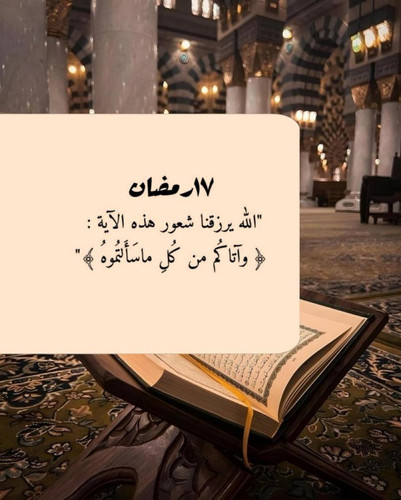 ١٧رمضان
"الله يرزقنا شعور هذه الآية :
﴿ وآتاكُم من كُلِ ماسَأَلتُموهُ ﴾"